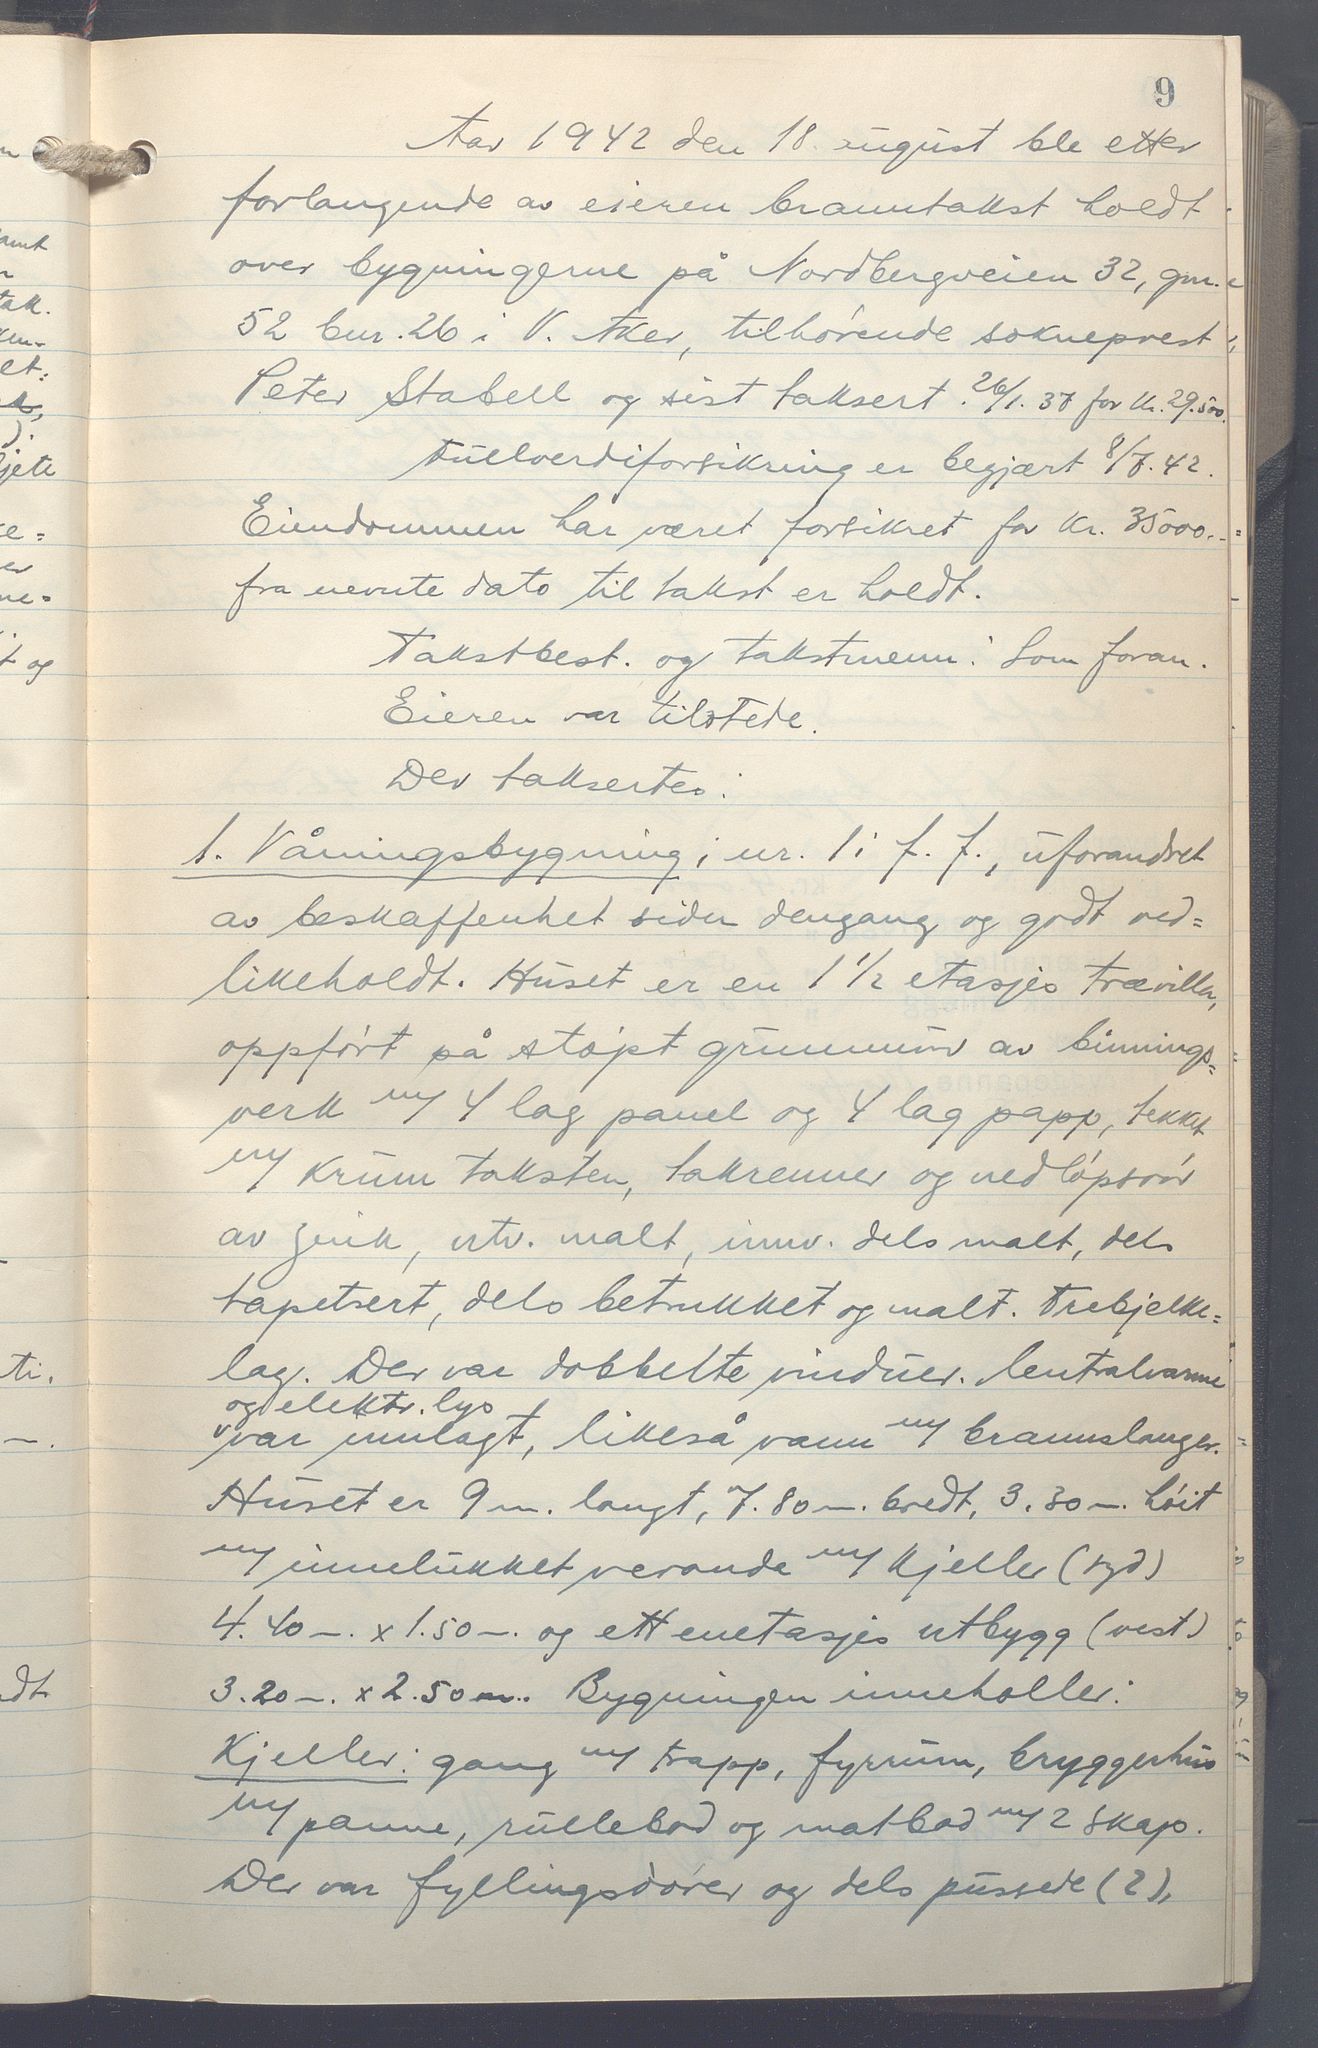 9
Aar 1942 den 18. august ble etter
forlangende av eieren branntakst holdt
over bygningerne på Nordbergveien 32, gnr.
52 bnr. 26 i V. Aker, tilhørende sokneprest
Peter Stabell og sist taksert 26/1. 37 for Kr. 29.500.
Fullverdiforsikring er begjært 8/7. 42.
Eiendommen har været forsikret for Kr. 35000.-
fra nevnte dato til takst er holdt.
Takstbest. og takstmenn: Som foran.
Eieren var tilstede.
Der taksertes:
1. Våningsbygning; nr. 1 i f. f., uforandret
av beskaffenhet siden dengang og godt ved=
likeholdt. Huset er en 1 1/2 etasjes trævilla,
oppført på støpt grunnmur av binnings=
verk m/ 4 lag panel og 4 lag papp, tekket
m/ krum taksten, takrenner og nedløpsrør
av zink, utv. malt, innv. dels malt, dels
tapetsert, dels betrukket og malt. Trebjelke=
lag. Der var dobbelte vinduer. Centralvarme
og elektr. lys
var innlagt, likeså vann m/ brannslanger.
Huset er 9 m. langt, 7.80 m. bredt, 3.30 m. høit
m/ innelukket veranda m/ kjeller (syd)
4.40 m. x 1.50 m. og ett enetasjes utbygg (vest)
3.20 m. x 2.50 m. Bygningen inneholler:
Kjeller: gang m/ trapp, fyrrum, bryggerhus
m/ panne, rullebod og matbod m/ 2 skap.
Der var fyllingsdører og dels pussede (2),